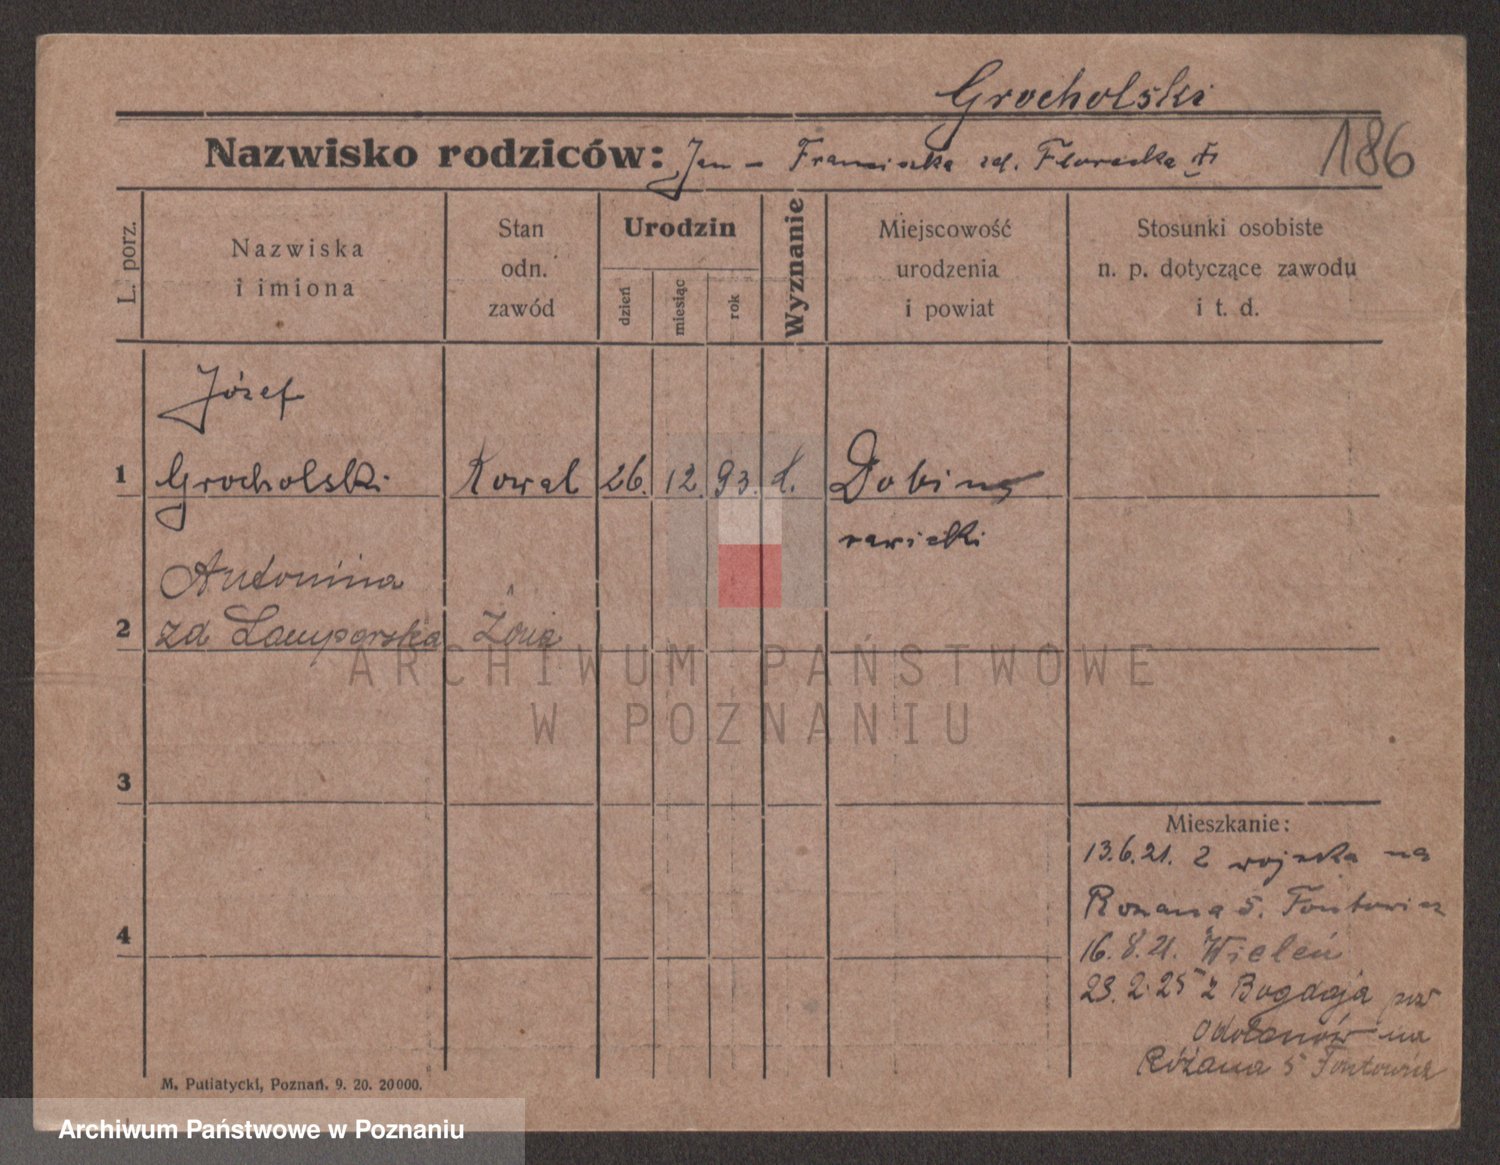 Grocholski
Nazwisko rodziców: Jan - Franciszka zd. Florecka
186
L. porz.
Nazwiska
i imiona
Stan
odn.
zawód
Urodzin
dzień
miesiąc
rok
Wyznanie
Miejscowość
urodzenia
i powiat
Stosunki osobiste
n. p. dotyczące zawodu
i t. d.
Józef
1 Grocholski Kowal 26. 12. 93. k. Dobina
rawicki
Antonina
2 zd Lamperska Żona
3
4
Mieszkanie:
13.6.21. z wojska na
Rozana 5. Fontowicz
16.8.21. Wieleń
23.2.25 z Bogdaja pow
Odolanów na
Różana 5 Fontowicz
M. Putiatycki, Poznań. 9. 20. 20000.
ARCHIWUM PAŃSTWOWE
W POZNANIU
Archiwum Państwowe w Poznaniu